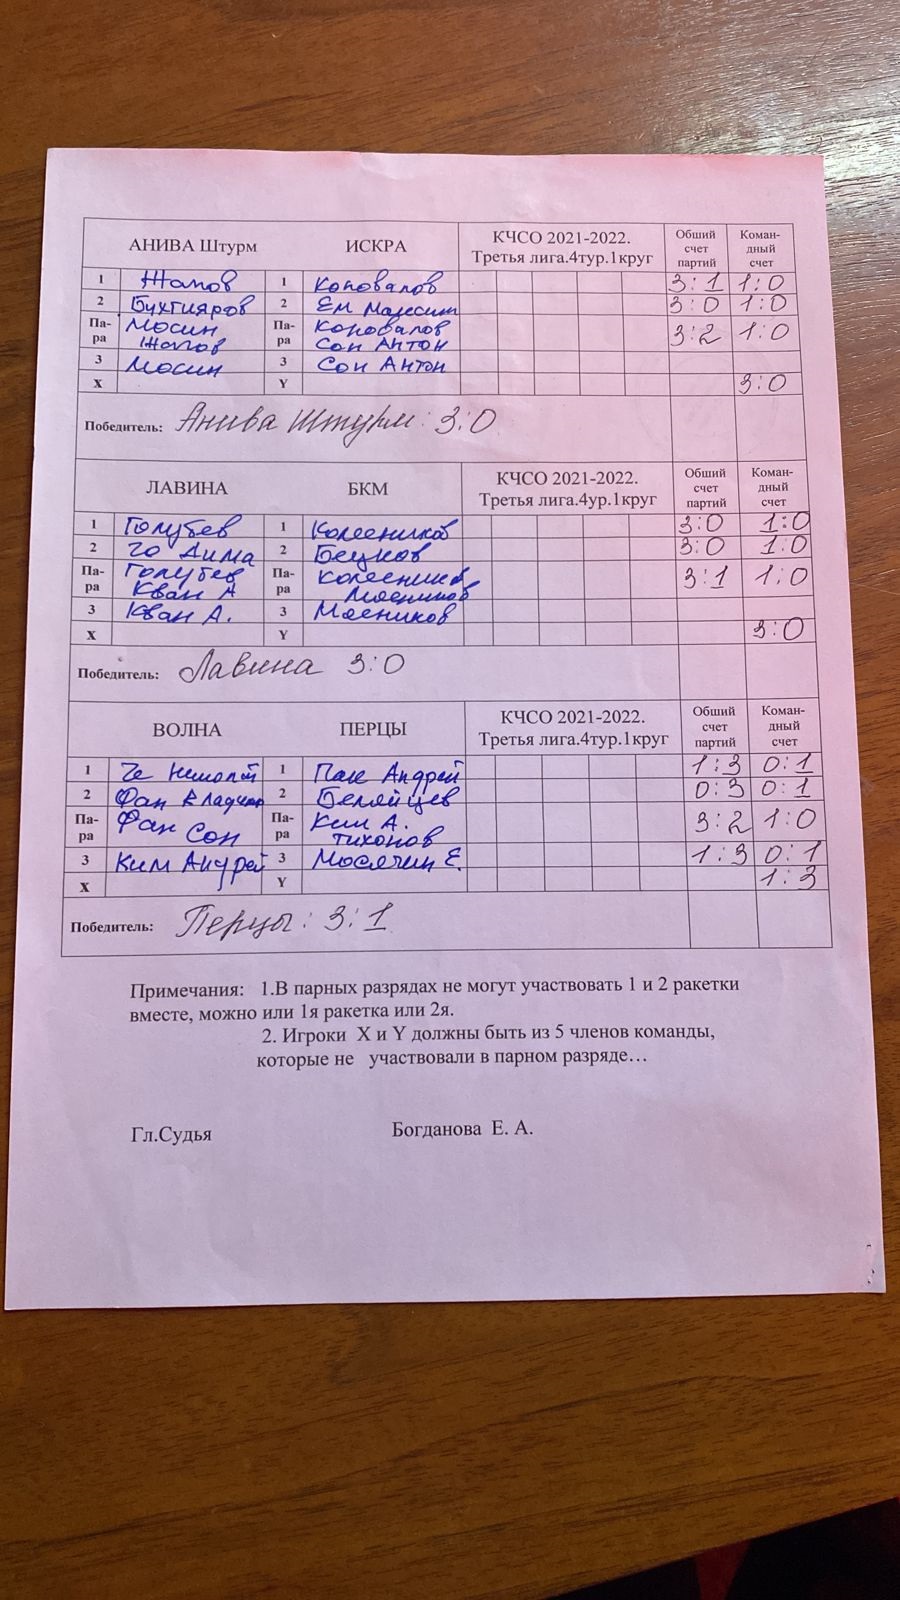 АНИВА Штурм ИСКРА КЧСО 2021-2022. Третья лига.4тур.1круг Обший счет партий Коман-дный счет
1 Жапов 1 Коновалов 3:1 1:0
2 Бухтияров 2 Ем Максим 3:0 1:0
Па-ра Мосин Жапов Па-ра Коновалов Сон Антон 3:2 1:0
3 Мосин 3 Сон Антон
X Y 3:0
Победитель: Анива Штурм: 3:0
ЛАВИНА БКМ КЧСО 2021-2022. Третья лига.4ур.1круг Обший счет партий Коман-дный счет
1 Голубев 1 Колесников 3:0 1:0
2 Дима 2 3:0 1:0
Па-ра Голубев Кван А Па-ра Колесников Мясников 3:1 1:0
3 Кван А. 3 Мясников
X Y 3:0
Победитель: Лавина 3:0
ВОЛНА ПЕРЦЫ КЧСО 2021-2022. Третья лига.4тур.1круг Обший счет партий Коман-дный счет
1 Че 1 Пак Андрей 1:3 0:1
2 Фан 2 0:3 0:1
Па-ра Фан Сон Па-ра Ким А. Тихонов 3:2 1:0
3 Ким Андрей 3 Мосячин Е. 1:3 0:1
X Y 1:3
Победитель: Перцы: 3:1
Примечания: 1.В парных разрядах не могут участвовать 1 и 2 ракетки
вместе, можно или 1я ракетка или 2я.
2. Игроки X и Y должны быть из 5 членов команды,
которые не участвовали в парном разряде…
Гл.Судья Богданова Е. А.